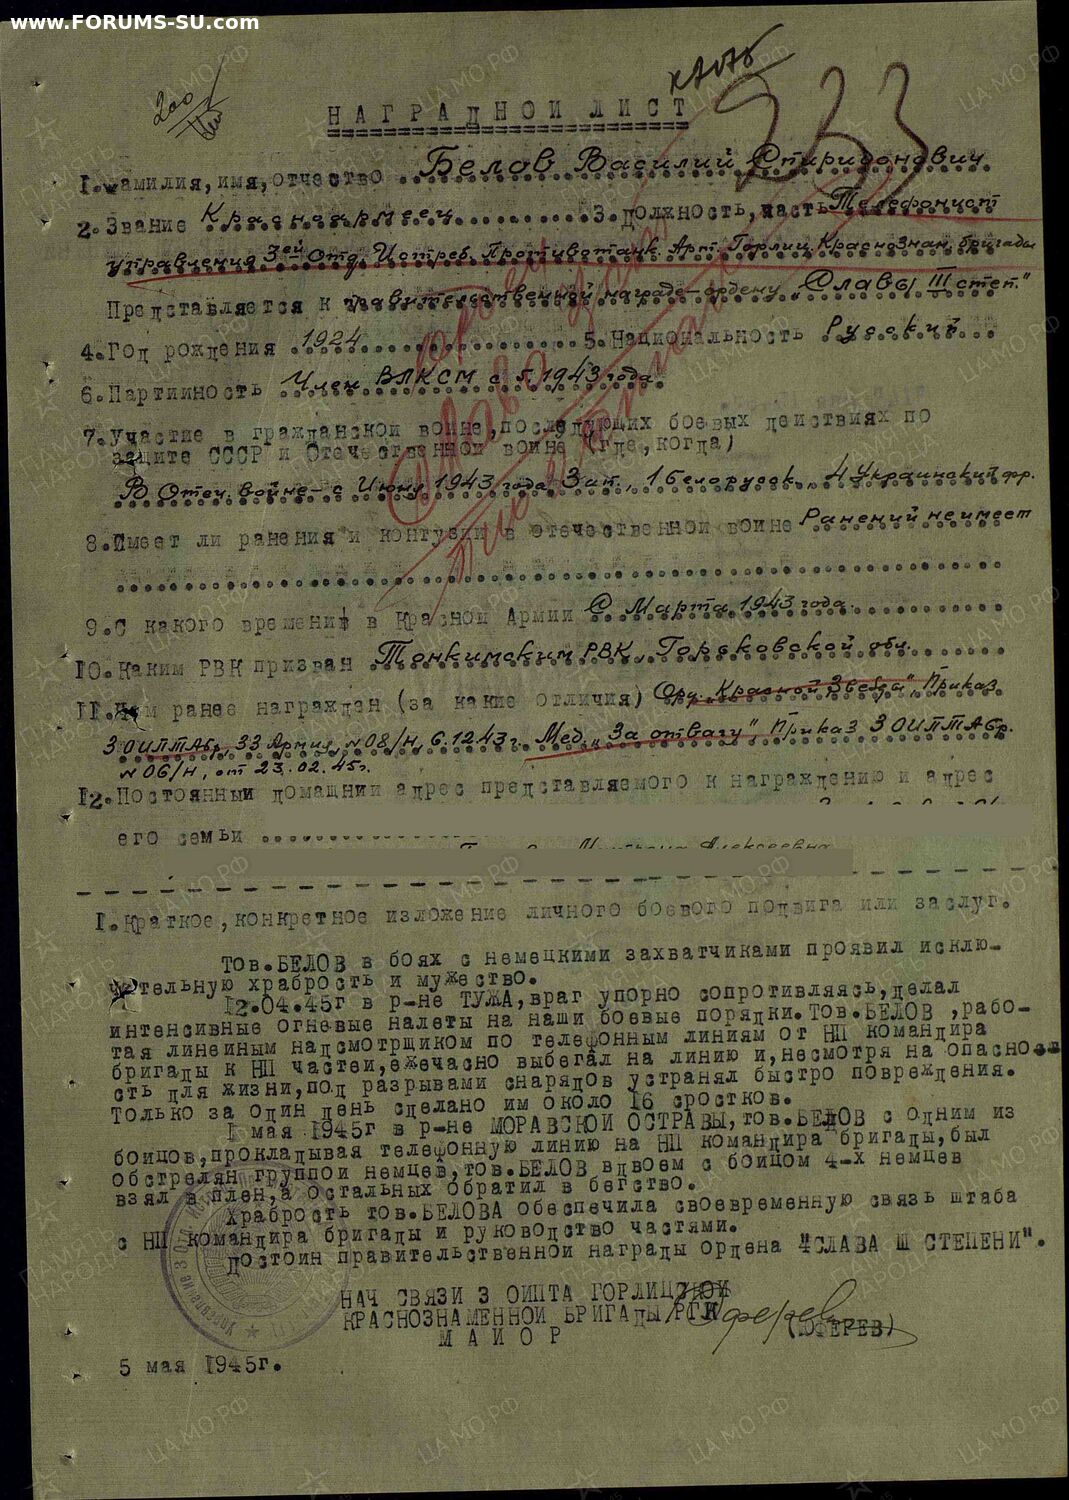 www.FORUMS-SU.com
200
233
НАГРАДНОЙ ЛИСТ
1. Фамилия, имя, отчество Белов Василий Спиридонович
2. Звание Красноармеец 3. Должность, часть Телефонист
управления 3ей Отд. Истреб. Противотанк. Арт. Горлиц. Краснознам. бригады
Представляется к правительственной награде - ордену "Славы III степ."
4. Год рождения 1924 5. Национальность Русский
6. Партийность Член ВЛКСМ с 1943 года.
7. Участие в гражданской войне, последующих боевых действиях по
защите СССР и Отечественной войне (где, когда)
В Отеч. войне - с Июня 1943 года, Зап., 1 Белорусск., 4 Украинский фр.
8. Имеет ли ранения и контузии в отечественной войне Ранений не имеет
9. С какого времени в Красной Армии С Марта 1943 года.
10. Каким РВК призван Тонкинским РВК, Горьковской обл.
11. Чем ранее награжден (за какие отличия) Орд. "Красной Звезда", Приказ
3 ОИПТАБр, 33 Армия, №08/н, 6.12.43 г. Мед. "За отвагу" Приказ 3 ОИПТАБр.
№06/н, от 23.02.45г.
12. Постоянный домашний адрес представляемого к награждению и адрес
его семьи
Алексеевна
I. Краткое, конкретное изложение личного боевого подвига или заслуг.
Тов. БЕЛОВ в боях с немецкими захватчиками проявил исклю-
чительную храбрость и мужество.
12.04.45г в р-не ТУЖА, враг упорно сопротивляясь, делал
интенсивные огневые налеты на наши боевые порядки. Тов. БЕЛОВ, рабо-
тая линейным надсмотрщиком по телефонным линиям от НП командира
бригады к НП частей, ежечасно выбегал на линию и, несмотря на опасно-
сть для жизни, под разрывами снарядов устранял быстро повреждения.
Только за один день сделано им около 16 сростков.
1 мая 1945г в р-не МОРАВСКОЙ ОСТРАВЫ, тов. БЕЛОВ с одним из
бойцов, прокладывая телефонную линию на НП командира бригады, был
обстрелян группой немцев, тов. БЕЛОВ вдвоем с бойцом 4-х немцев
взял в плен, а остальных обратил в бегство.
Храбрость тов. БЕЛОВА обеспечила своевременную связь штаба
с НП командира бригады и руководство частями.
Достоин правительственной награды ордена "СЛАВА Ш СТЕПЕНИ".
НАЧ СВЯЗИ 3 ОИПТА ГОРЛИЦКОЙ
КРАСНОЗНАМЕННОЙ БРИГАДЫ РГК
МАЙОР (ЮФЕРЕВ)
5 мая 1945г.